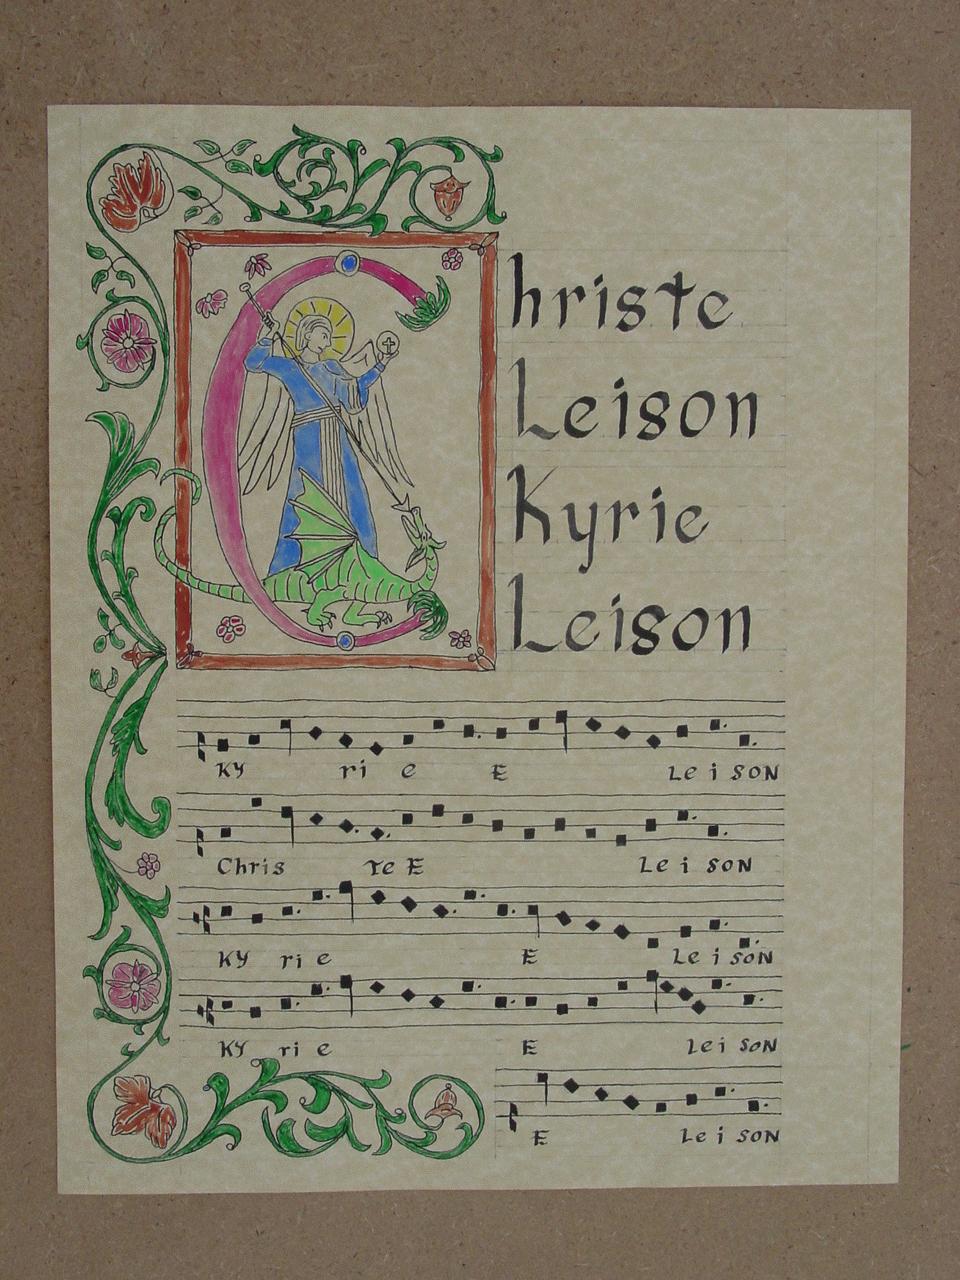 Christe
Leison
Kyrie
Leison
Ky ri e E Leison
Chris te E Leison
Ky rie E Leison
Ky rie E Leison
E Leison